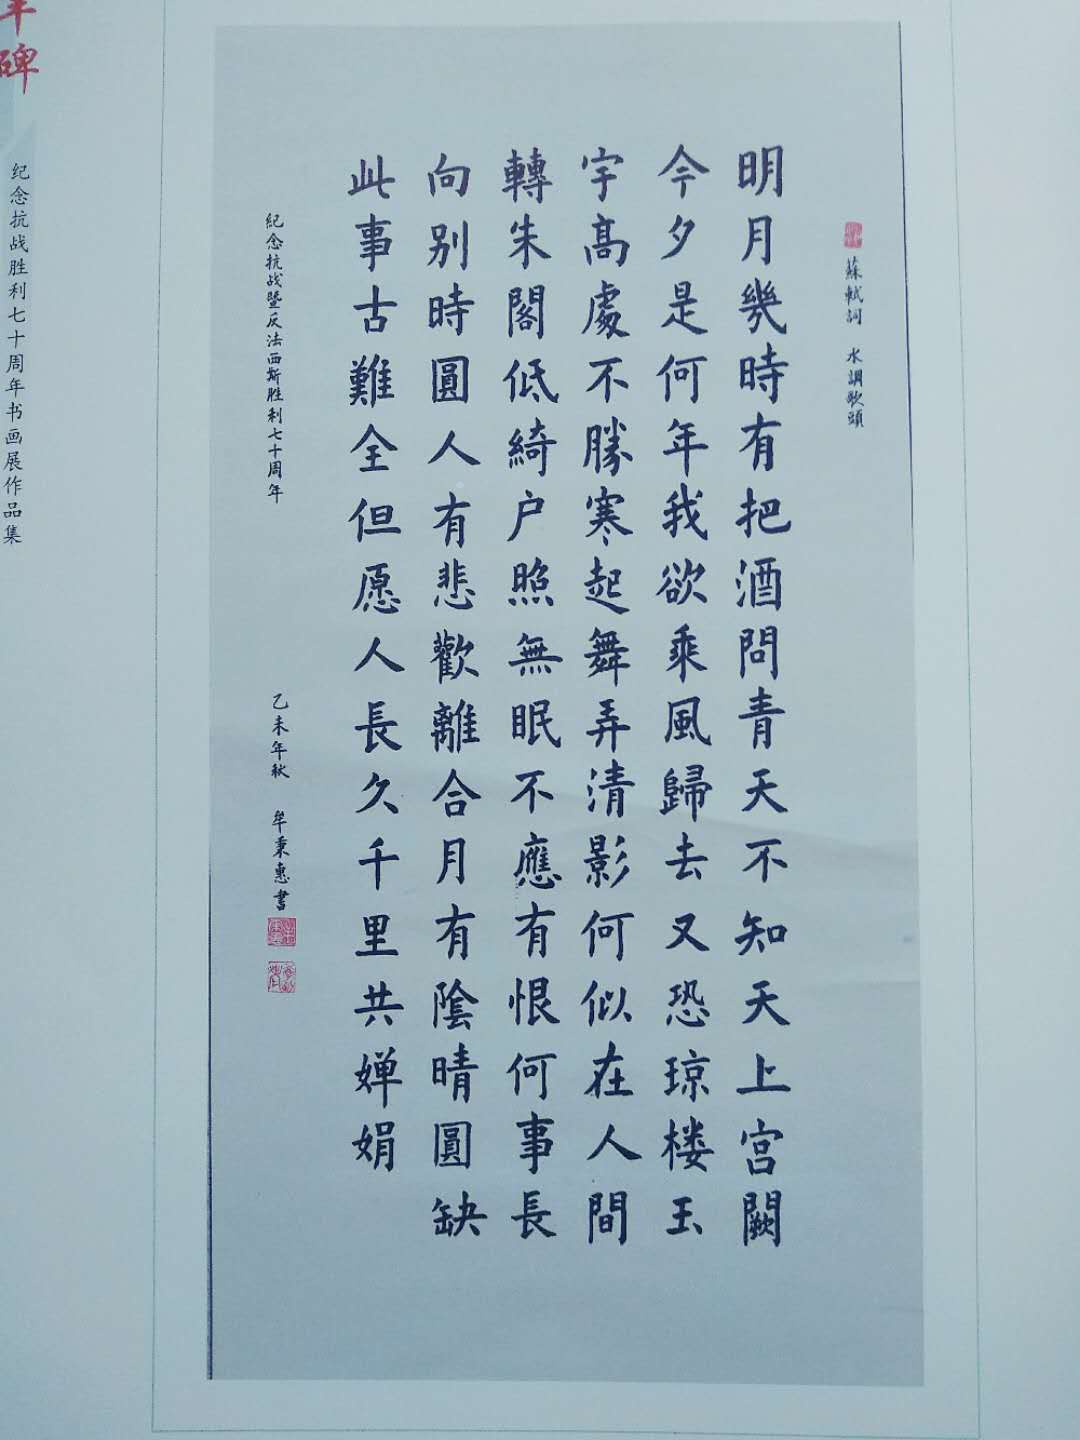 蘇軾詞　水調歌頭
明月幾時有把酒問青天不知天上宫闕
今夕是何年我欲乘風歸去又恐琼楼玉
宇高處不勝寒起舞弄清影何似在人間
轉朱閣低綺户照無眠不應有恨何事長
向别時圓人有悲歡離合月有陰晴圓缺
此事古難全但愿人長久千里共婵娟
紀念抗战暨反法西斯胜利七十周年
乙未年秋　牟秉惠書
碑
纪念抗战胜利七十周年书画展作品集